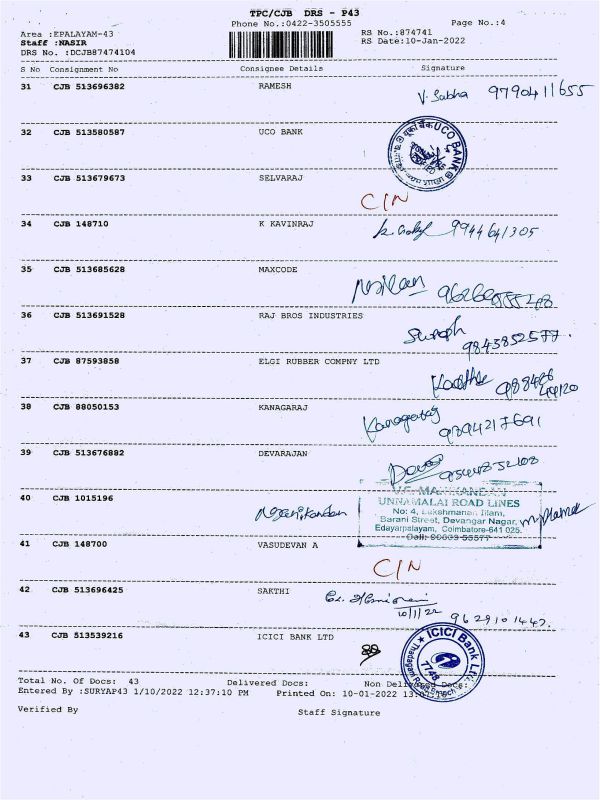 TPC/CJB DRS - P43
Phone No.:0422-3505555 Page No.:4
Area :EPALAYAM-43 RS No.:874741
Staff :NASIR RS Date:10-Jan-2022
DRS No. :DCJB87474104
S No Consignment No Consignee Details Signature
31 CJB 513696382 RAMESH V. Subha 9790411655
32 CJB 513580587 UCO BANK
UCO BANK
33 CJB 513679673 SELVARAJ
C/N
34 CJB 148710 K KAVINRAJ 9944641305
35 CJB 513685628 MAXCODE
36 CJB 513691528 RAJ BROS INDUSTRIES
Suresh 9843852577.
37 CJB 87593858 ELGI RUBBER COMPNY LTD
38 CJB 88050153 KANAGARAJ
Kanagaraj 9894217691
39 CJB 513676882 DEVARAJAN
40 CJB 1015196
UNNAMALAI ROAD LINES
No: 4, Lakshmanan Illam,
Barani Street, Devangar Nagar,
Edayarpalayam, Coimbatore-641 025.
41 CJB 148700 VASUDEVAN A
C/N
42 CJB 513696425 SAKTHI
10/1/22 9629101447.
43 CJB 513539216 ICICI BANK LTD
ICICI Bank
Total No. Of Docs: 43 Delivered Docs: Non Delivered Docs:
Entered By :SURYAP43 1/10/2022 12:37:10 PM Printed On: 10-01-2022
Verified By Staff Signature